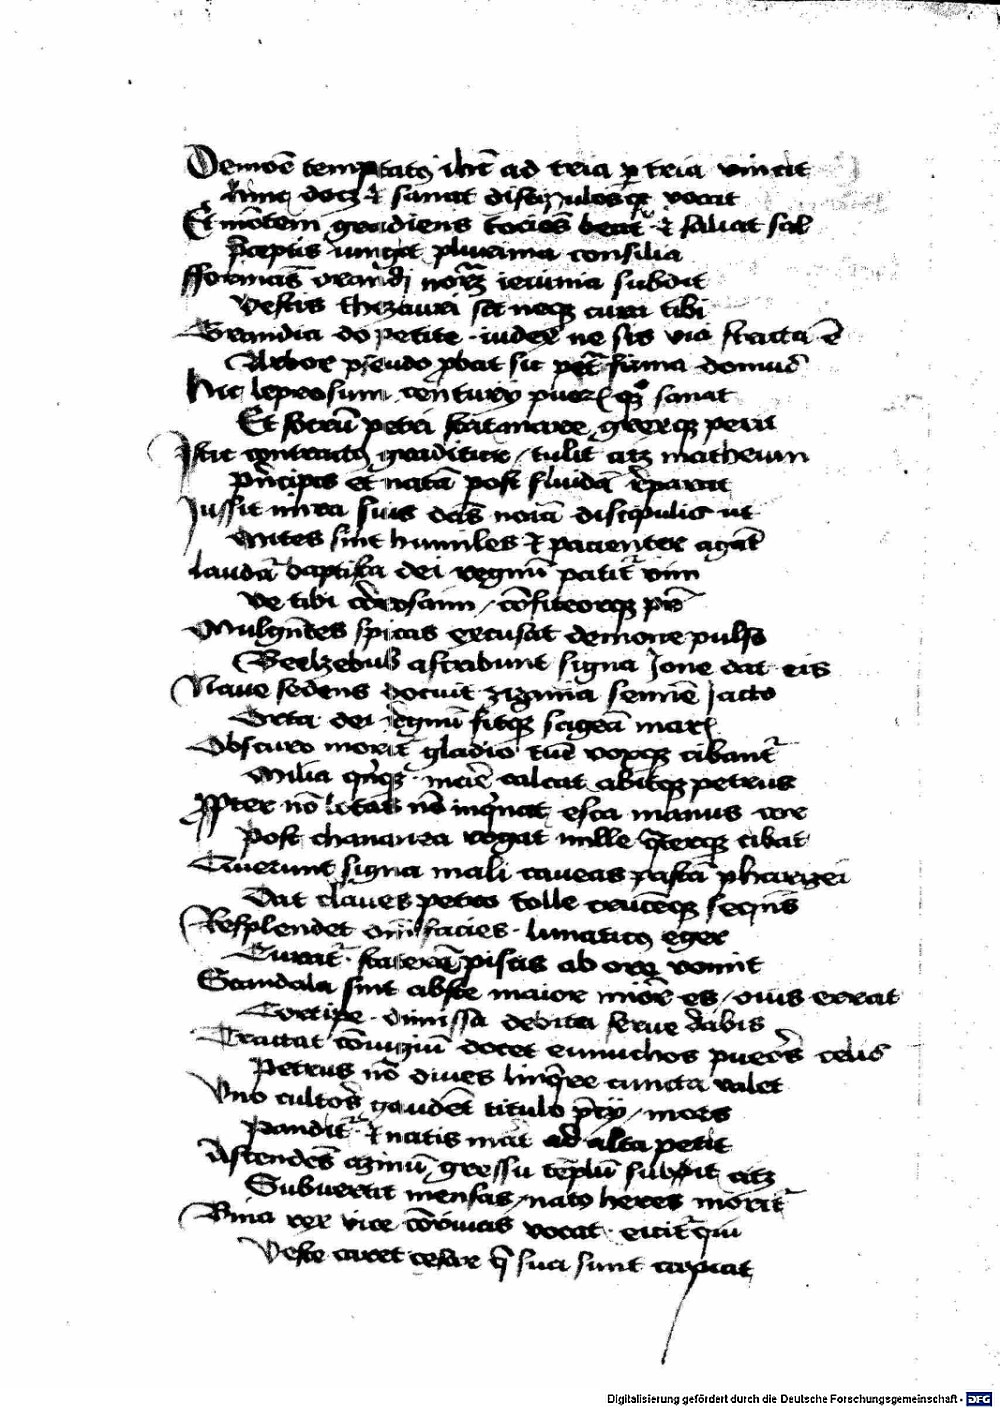 Demōe temptatꝯ ihc̄ ad tria ꝑ tria vincit
Hinc docꝫ ⁊ sanat discipulosqꝫ vocat
Et mōtem gradiens socios beat ⁊ saluat sal
P̄ceptis iungit plurima consilia
fformās orandi ieiunia subdit
Vestis thezauri sit neqꝫ cura tibi
Grandia do petite iudex ne sis via stricta ē
Arbor pseudo ꝓbat sic petra firma domum
Hic leprosum centurij puerum qꝫ sanat
Et socrū petri stat mare grexqꝫ perit
Istic contractꝯ graditur / tulit atqꝫ matheum
Principis et natā post fluidā reparat
Iussit mira suis dans noīa discipulis ut
Mites sint humiles ⁊ pacienter agāt
laudat baptista dei regnū patitr vim
Ve tibi corosaim / cōfiteorqꝫ pr̄
Vulgētes spicas excusat demone pulso
Beelzebub ascribunt signa Ione dat eis
Naue sedens docuit zizania semīe iacto
Orta dei regnū fitqꝫ sagena mari
Obscuro morit gladio cibantr
Milia qnqꝫ mare calcat abitqꝫ petrus
Propter nō lotas nō inqnat esca manus cor
Post chananea rogat mille qterqꝫ cibat
Querunt signa mali caueas pasta pharizei
Dat claues petro tolle crucēqꝫ sequēs
Resplendet om̄i facies lunaticꝯ eger
Curatr staterā piscis ab ore vomit
Scandala sint abste maior minor es / ouis errat
Corripe dimissa debita serue dabis
Tractat cōiugiū docet eunuchos pueros celis
Petrus nō diues linqꝛe cuncta valet
Vno cultores gaudēt titulo / mors
Panditr ⁊ natis mat̄ ad alta petit
Ascendēs azinū gressu tēplū subijt atqꝫ
Subuertit mensas / natꝯ heres moritr
Bina rex vice cōuiuas vocat eicitr qui
Veste caret cesare q̄ sua sunt capiat
Digitalisierung gefördert durch die Deutsche Forschungsgemeinschaft - DFG